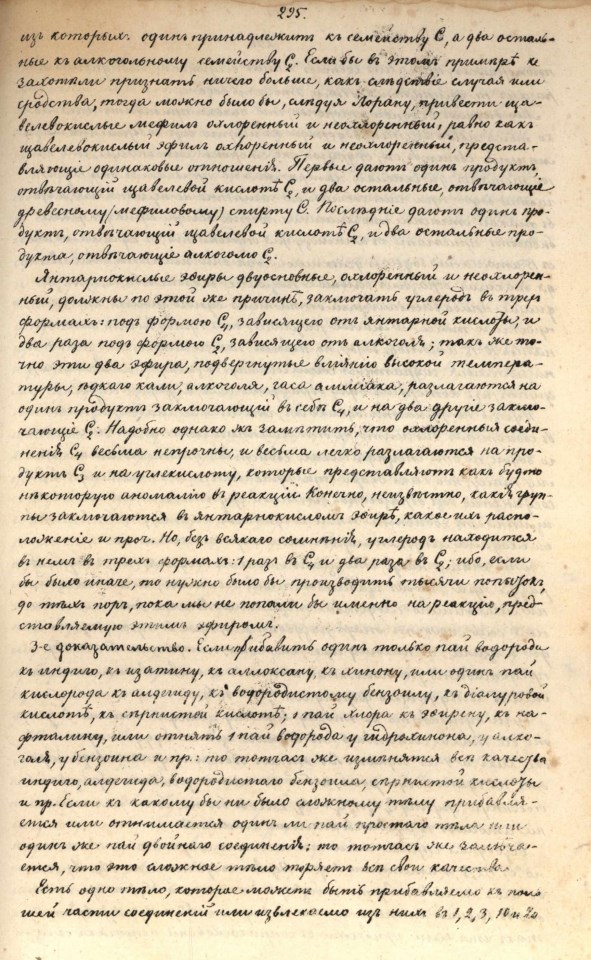 295.
изъ которыхъ: одинъ принадлежитъ къ семейству C, а два осталь-
ные къ алкогольному семейству C₂. Если бы въ этомъ примѣрѣ не
захотѣли признать ничего больше, какъ слѣдствіе случая или
сродства, тогда можно было бы, слѣдуя Лорану, привести ща-
велевокислые мефилъ охлоренный и неохлоренный, равно какъ
щавелевокислый эфилъ охлоренный и неохлоренный, предста-
вляющіе одинаковыя отношенія. Первые даютъ одинъ продуктъ
отвѣчающій щавелевой кислотѣ C₂, и два остальные, отвѣчающіе
древесному (мефиловому) спирту C. Послѣдніе даютъ одинъ про-
дуктъ, отвѣчающій щавелевой кислотѣ C₂, и два остальные про-
дукта, отвѣчающіе алкоголю C₂.
Янтарнокислые эѳиры двуосновные, охлоренный и неохлорен-
ный, должны по этой же причинѣ, заключать углеродъ въ трехъ
формахъ: подъ формою C₄, зависящего отъ янтарной кислоты, и
два раза подъ формою C₂, зависящего отъ алкоголя; такъ же то-
чно эти два эѳира, подвергнутые вліянію высокой темпера-
туры, ѣдкаго кали, алкоголя, газа амміака, разлагаются на
одинъ продуктъ заключающій въ себѣ C₄, и на два другіе заклю-
чающіе C₂. Надобно однако жъ замѣтить, что охлоренныя соеди-
ненія C₄ весьма непрочны, и весьма легко разлагаются на про-
дуктъ C₃ и на углекислоту, которые представляютъ какъ будто
нѣкоторую аномалію въ реакціи. Конечно, неизвѣстно, какія груп-
пы заключаются въ янтарнокисломъ эѳирѣ, какое ихъ распо-
ложеніе и проч. Но, безъ всякаго сомнѣнія, углеродъ находится
въ немъ въ трехъ формахъ: 1 разъ въ C₄ и два раза въ C₂; ибо, если
бы было иначе, то нужно было бы производить тысячи попытокъ,
до тѣхъ поръ, пока мы не попали бы именно на реакцію, пред-
ставляемую этимъ эфиромъ.
3-е доказательство. Если прибавить одинъ только пай водорода
къ индиго, къ изатину, къ аллоксану, къ хинону, или одинъ пай
кислорода къ алдегиду, къ водородистому бензоилу, къ діалуровой
кислотѣ, къ сѣрнистой кислотѣ; 1 пай хлора къ эѳирену, къ на-
фталину, или отнять 1 пай водорода у гидрохинона, у алко-
голя, у бензоина и пр: то тотчасъ же измѣнятся всѣ качества
индиго, алдегида, водородистаго бензоила, сѣрнистой кислоты
и пр. Если къ какому бы ни было сложному тѣлу прибавля-
ется или отнимается одинъ ли пай простаго тѣла или
одинъ же пай двойнаго соединенія: то тотчасъ же замѣча-
ется, что это сложное тѣло теряетъ всѣ свои качества.
Есть одно тѣло, которое можетъ быть прибавляемо къ боль-
шей части соединеній или извлекаемо изъ нихъ въ 1, 2, 3, 10 и 20